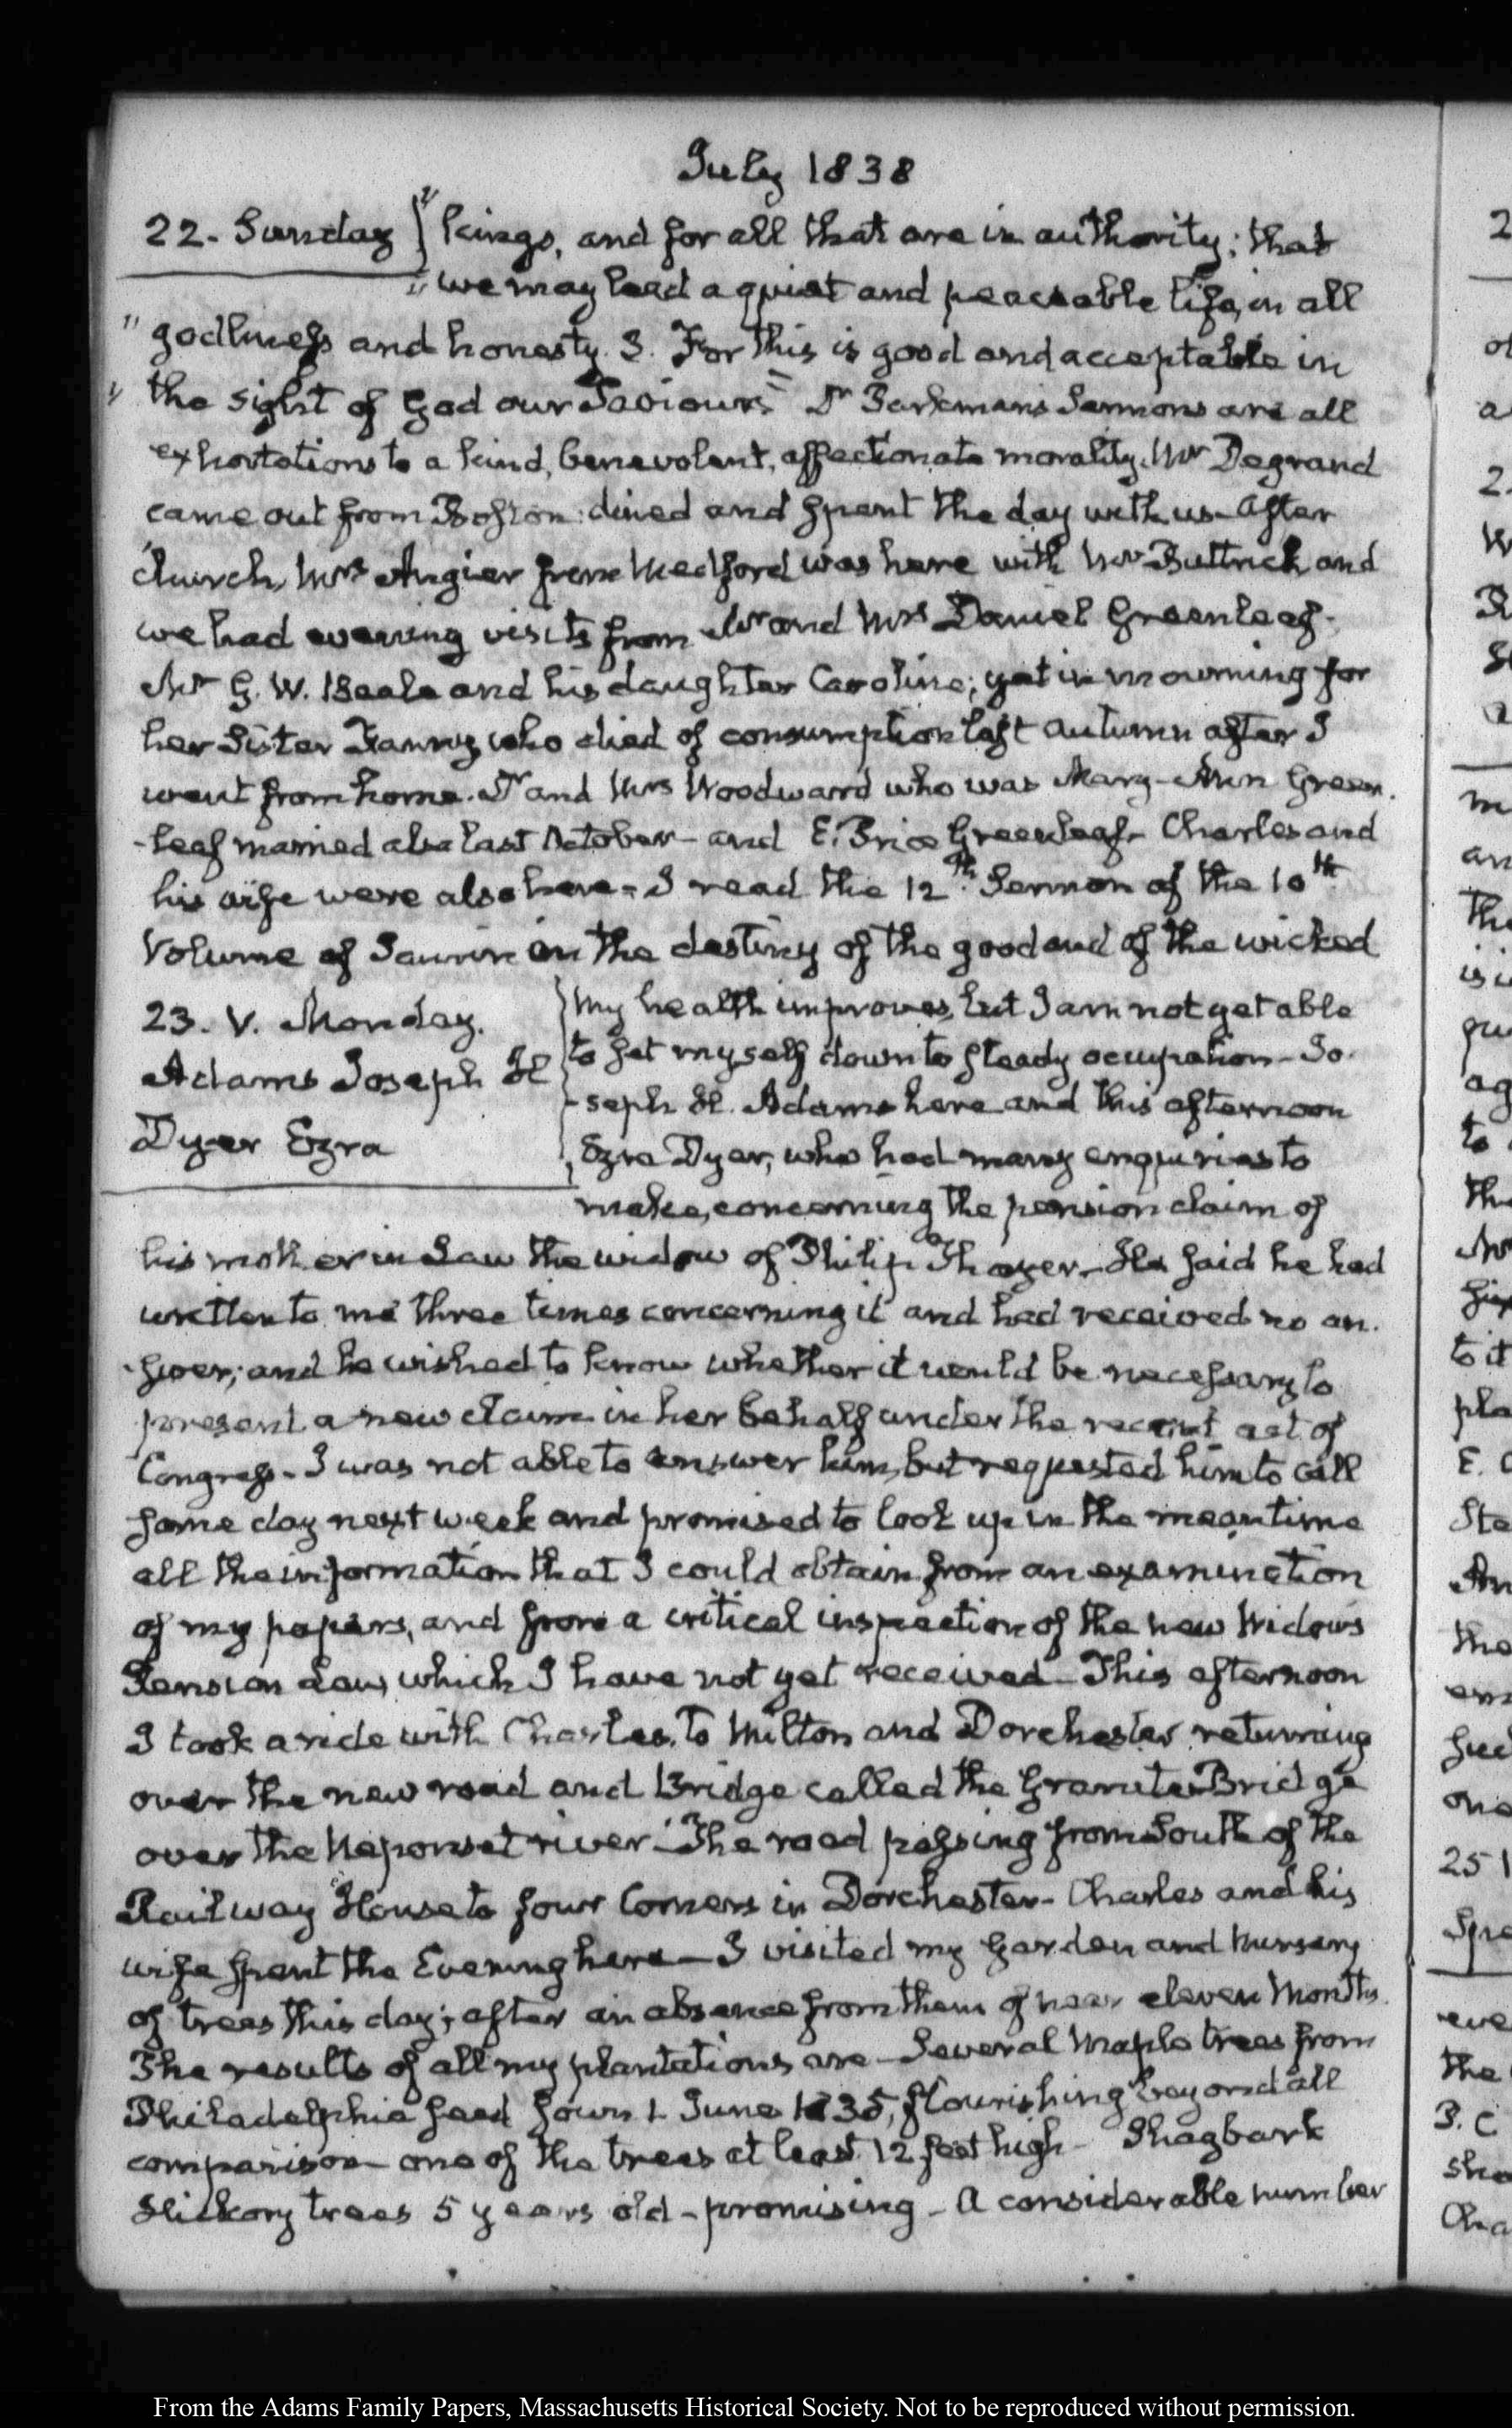 July 1838
22. Sunday } " kings, and for all that are in authority; that
" we may lead a quiet and peaceable life, in all
" godliness and honesty. 3. For this is good and acceptable in
" the sight of God our Saviour." Dr Parkman's Sermons are all
exhortations to a kind, benevolent, affectionate morality. Mr Degrand
came out from Boston: dined and spent the day with us. After
church, Mrs Angier from Medford was here with Mr Buttrick and
we had evening visits from Mr and Mrs Daniel Greenleaf.
Mr G. W. Beale and his daughter Caroline; yet in mourning for
her Sister Fanny who died of consumption last Autumn after I
went from home. Dr and Mrs Woodward who was Mary-Ann Green-
-leaf married also last October - and E. Price Greenleaf - Charles and
his wife were also here - I read the 12th Sermon of the 10th
Volume of Saurin on the destiny of the good and of the wicked
23. V. Monday.
Adams Joseph H
Dyer Ezra
My health improves, but I am not yet able
to set myself down to steady occupation - Jo-
-seph H. Adams here and this afternoon
Ezra Dyer, who had many enquiries to
make, concerning the pension claim of
his mother in Law the widow of Philip Thayer - He said he had
written to me three times concerning it and had received no an-
-swer; and he wished to know whether it would be necessary to
present a new claim in her behalf under the recent act of
Congress - I was not able to answer him, but requested him to call
some day next week and promised to look up in the meantime
all the information that I could obtain from an examination
of my papers, and from a critical inspection of the new Widows
Pension Law, which I have not yet received - This afternoon
I took a ride with Charles, to Milton and Dorchester returning
over the new road and Bridge called the Granite Bridge
over the Neponset river - The road passing from South of the
Railway House to four Corners in Dorchester - Charles and his
wife spent the Evening here - I visited my Garden and nursery
of trees this day; after an absence from them of near eleven Months.
The results of all my plantations are - Several Maple trees from
Philadelphia seed sown 1 June 1835, flourishing beyond all
comparison one of the trees at least 12 feet high - Shagbark
Hickory trees 5 years old - promising - A considerable number
From the Adams Family Papers, Massachusetts Historical Society. Not to be reproduced without permission.